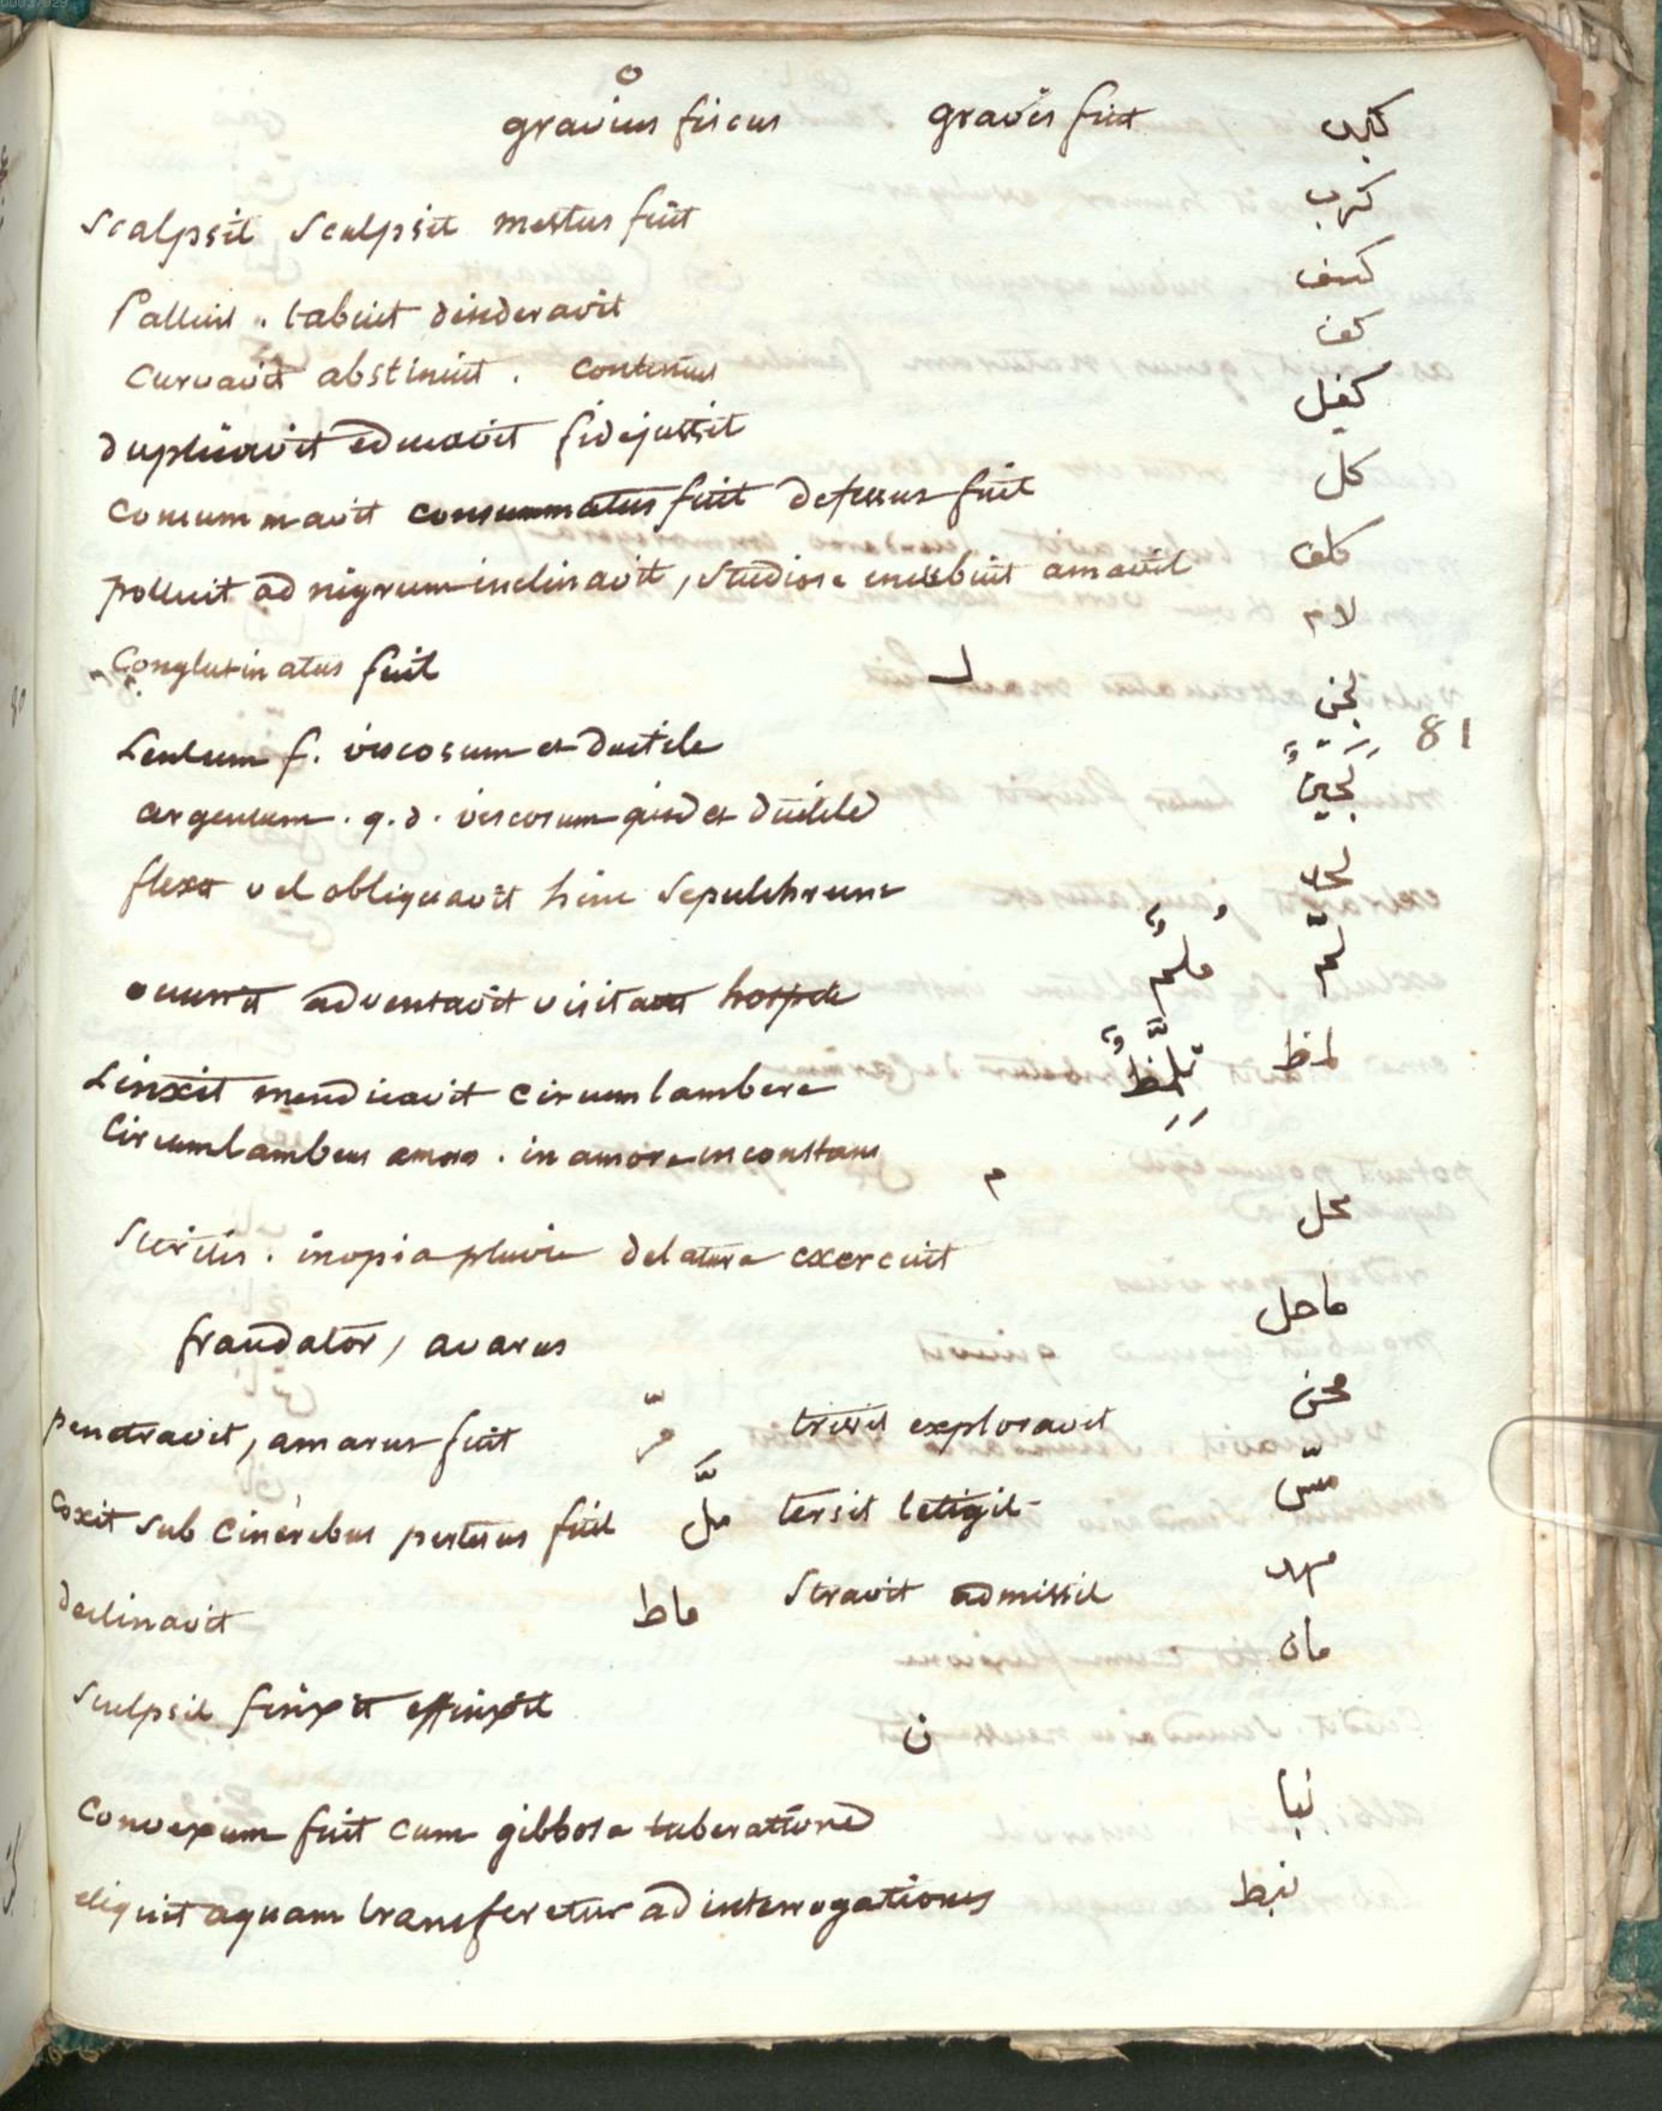 gravius fiscus gravis fuit كبر
كرب
Scalpsit Sculpsit mestus fuit
كسف
Palluit . tabuit desideravit
كف
curvavit abstinuit . contentus
كفل
duplicavit educavit fidejussit
كل
consummavit consummatus fuit defessus fuit
كلف
polluit ad nigrum inclinavit, studiose incubuit amavit
لام
conglutinatus fuit ل
لجن
81
Lentum f. viscosum et ductile
لجين
argentum . q. d. viscosum quid et ductile
لحد
flexit vel obliquavit hinc sepulchrum
لمّ ملمٌّ
advertavit visitavit hospite
لمظ تلمّظٌ
Linxit mendicavit circumlambere
Circumlambens amor . in amore inconstans
م
محل
Sterilis . inopia pluvie delatura exercuit
ماحل
fraudator, avarus
محن
penetravit, amarus fuit مرّ trivit exploravit
مسّ
coxit sub cineribus pertesus fuit ملّ tersit tetigit
مهد
declinavit ماط Stravit admissit
مان
Sculpsit finxit effinxit
ن
نبا
Convexum fuit cum gibbosa tuberatione
نبط
eliquit aquam transferetur ad interrogationes